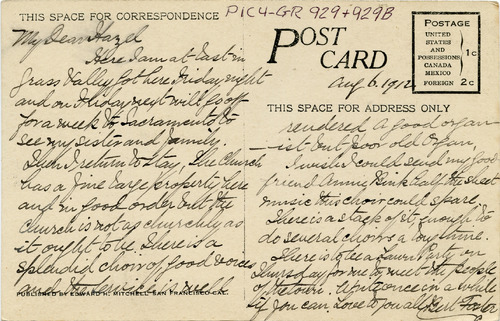 THIS SPACE FOR CORRESPONDENCE
PIC4-GR 929+929B
My Dear Hazel
Here I am at last in
Grass Valley. Got here Friday night
and on Friday next will go off
for a week to Sacramento to
see my sister and family.
Then I return to stay. The Church
has a fine large property here
and in good order but the
church is not as churchly as
it ought to be. There is a
splendid choir of good voices
and the service is well
PUBLISHED BY EDWARD H. MITCHELL SAN FRANCISCO CAL.
POST CARD
Aug 6. 1912
POSTAGE
UNITED
STATES
AND
POSSESSIONS
CANADA
MEXICO
1c
FOREIGN 2c
THIS SPACE FOR ADDRESS ONLY
rendered. A good organ-
-ist but poor old Organ,
I wish I could send my good
friend Annie the sheet
music this choir could spare.
There is a stack of it, enough to
do several choirs a long time.
There is to be a Lawn Party on
Thursday for me to meet the people
of the town. Write once in a while
if you can. Love to you all